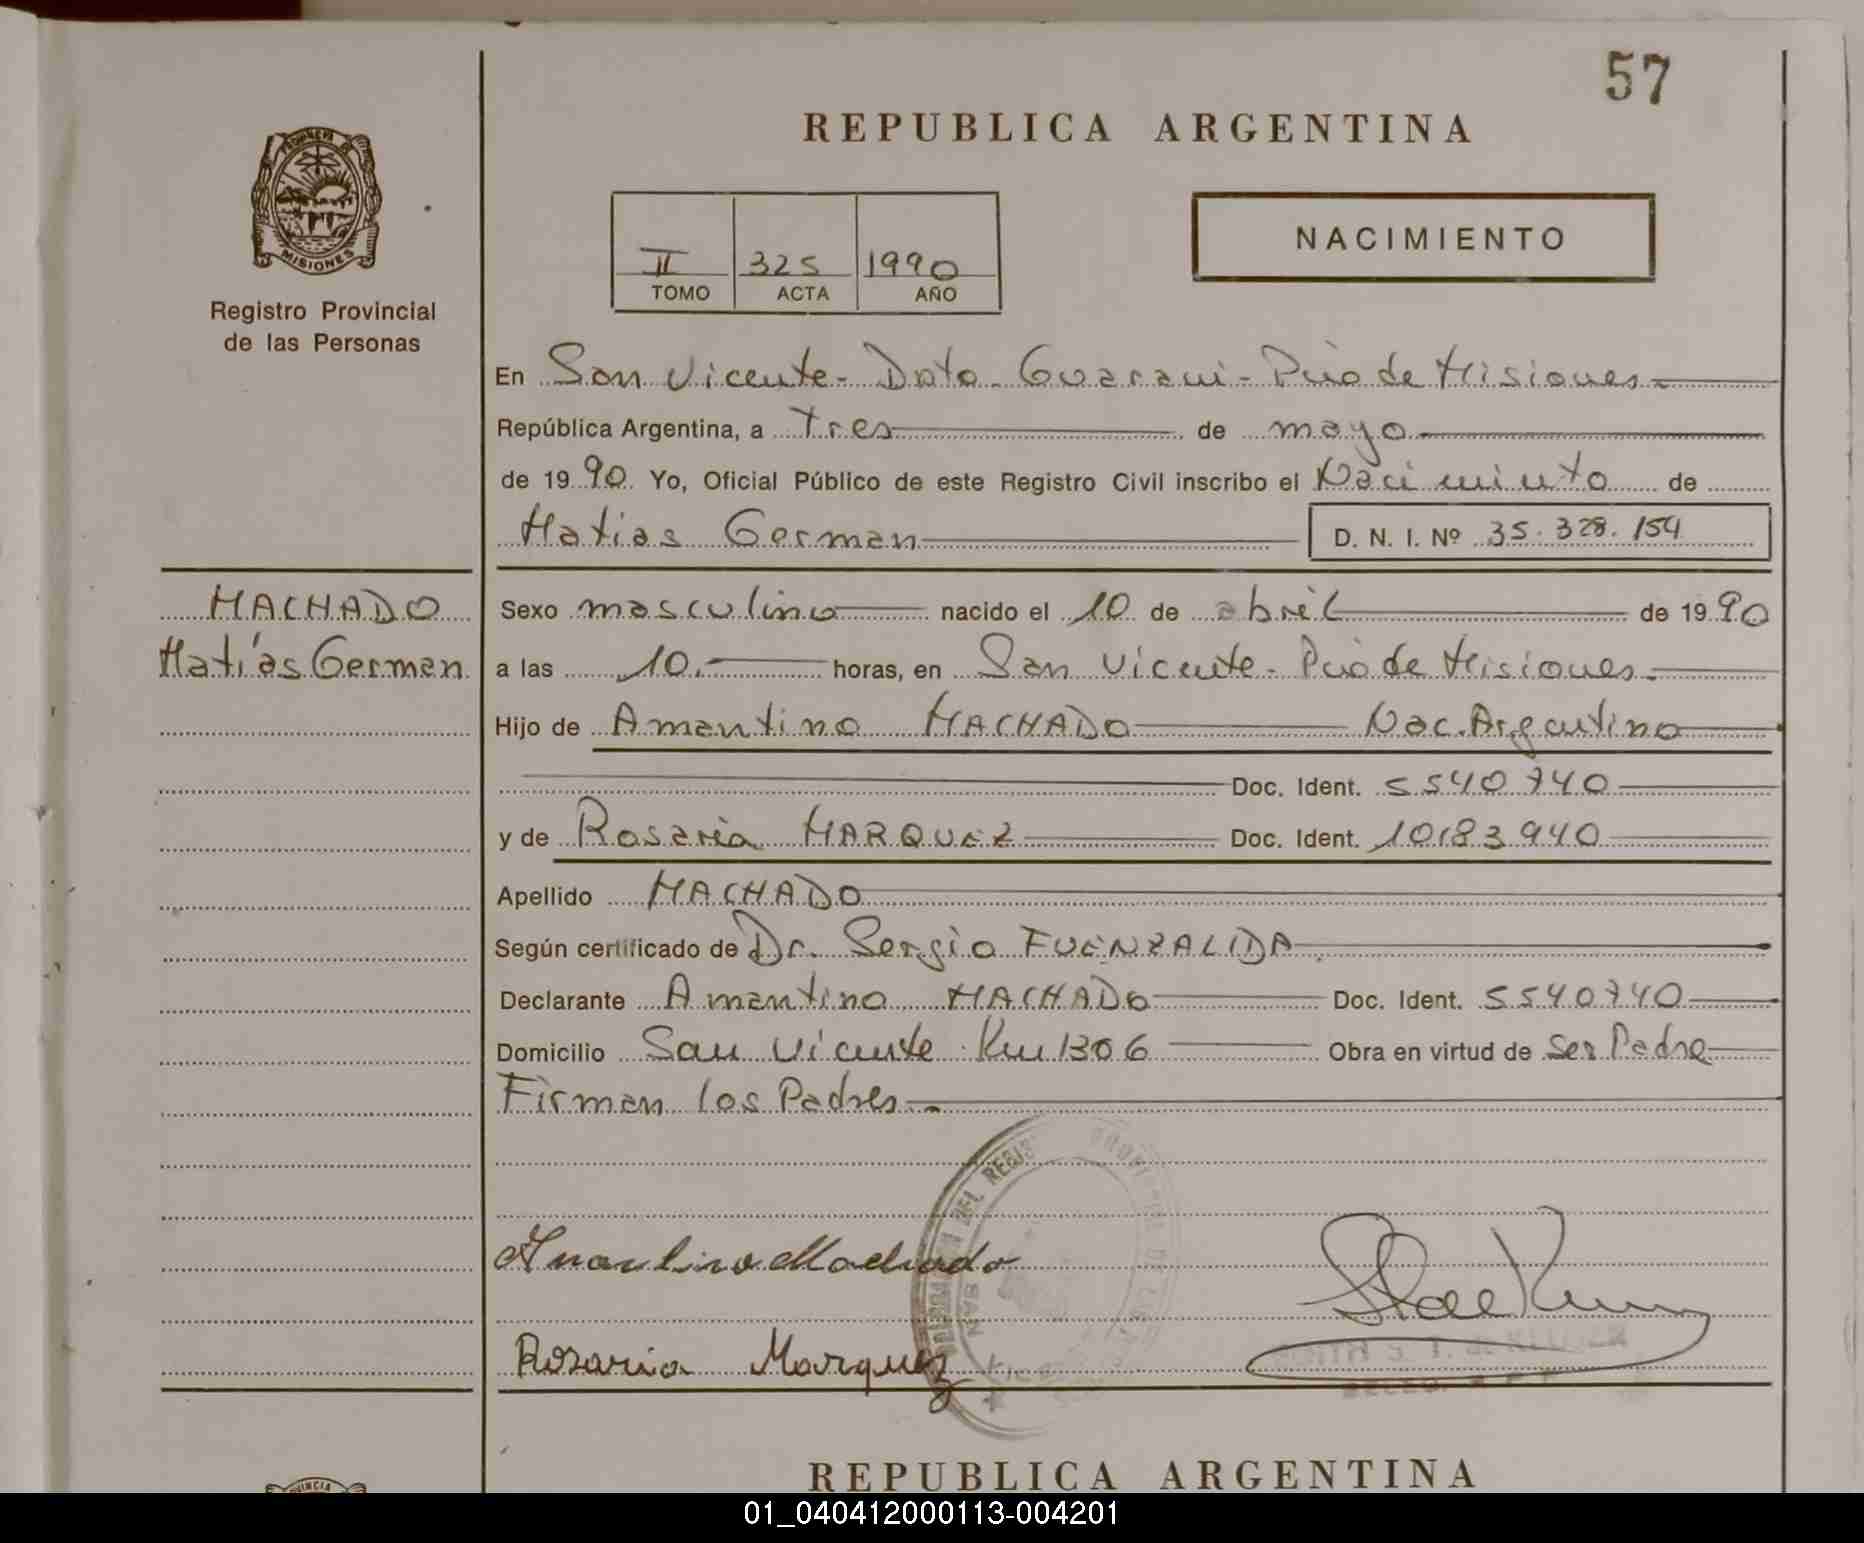 57
REPUBLICA ARGENTINA
PROVINCIA DE
MISIONES
Registro Provincial
de las Personas
II 325 1990
TOMO ACTA AÑO
NACIMIENTO
En San Vicente - Dpto. Guarani - Pcia de Misiones
República Argentina, a tres de mayo
de 1990. Yo, Oficial Público de este Registro Civil inscribo el Nacimiento de
Matias German D. N. I. Nº 35.328.154
MACHADO
Matías German
Sexo masculino nacido el 10 de abril de 1990
a las 10.- horas, en San Vicente - Pcia de Misiones.
Hijo de Amantino MACHADO Nac. Argentino
Doc. Ident. 5540740
y de Rosaria MARQUEZ Doc. Ident. 10183940
Apellido MACHADO
Según certificado de Dr. Sergio FUENZALIDA
Declarante Amantino MACHADO Doc. Ident. 5540740
Domicilio San Vicente Km 1306 Obra en virtud de ser Padre
Firman los Padres.-
DEL REGIS
SAN
Amantino Machado
Rosaria Marquez
REPUBLICA ARGENTINA
01_040412000113-004201